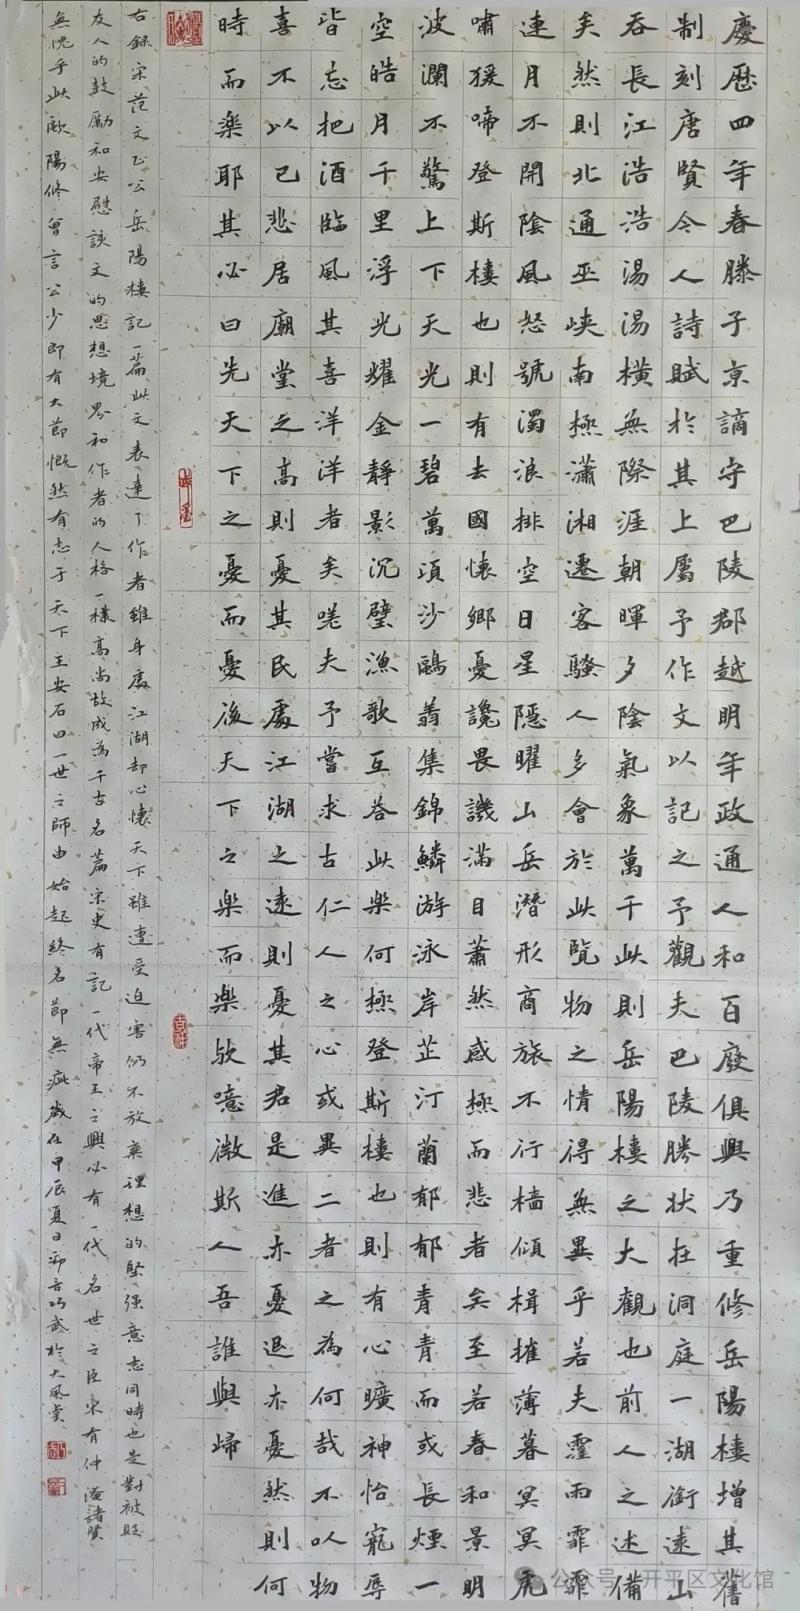 慶歷四年春滕子京謫守巴陵郡越明年政通人和百廢俱興乃重修岳陽樓增其舊
制刻唐賢今人詩賦於其上屬予作文以記之予觀夫巴陵勝狀在洞庭一湖銜遠山
吞長江浩浩湯湯橫無際涯朝暉夕陰氣象萬千此則岳陽樓之大觀也前人之述備
矣然則北通巫峽南極瀟湘遷客騷人多會於此覽物之情得無異乎若夫霪雨霏霏
連月不開陰風怒號濁浪排空日星隱曜山岳潛形商旅不行檣傾楫摧薄暮冥冥虎
嘯猨啼登斯樓也則有去國懷鄉憂讒畏譏滿目蕭然感極而悲者矣至若春和景明
波瀾不驚上下天光一碧萬頃沙鷗翥集錦鱗游泳岸芷汀蘭郁郁青青而或長煙一
空皓月千里浮光耀金靜影沉璧漁歌互答此樂何極登斯樓也則有心曠神怡寵辱
皆忘把酒臨風其喜洋洋者矣嗟夫予嘗求古仁人之心或異二者之為何哉不以物
喜不以己悲居廟堂之高則憂其民處江湖之遠則憂其君是進亦憂退亦憂然則何
時而樂耶其必曰先天下之憂而憂後天下之樂而樂歟噫微斯人吾誰與歸
右録宋范文正公岳陽樓記一篇此文表達了作者雖身處江湖却心懷天下雖遭受迫害仍不放棄理想的堅强意志同時也是對被貶
友人的鼓勵和安慰該文的思想境界和作者的人格一樣高尚故成為千古名篇宋史有記一代帝王之興必有一代名世之臣宋有仲淹諸賢
無愧乎此歐陽修曾言公少即有大節慨然有志于天下王安石曰一世之師由始起終名節無疵歲在甲辰夏日於大風堂
吉祥
公众号·开平区文化馆